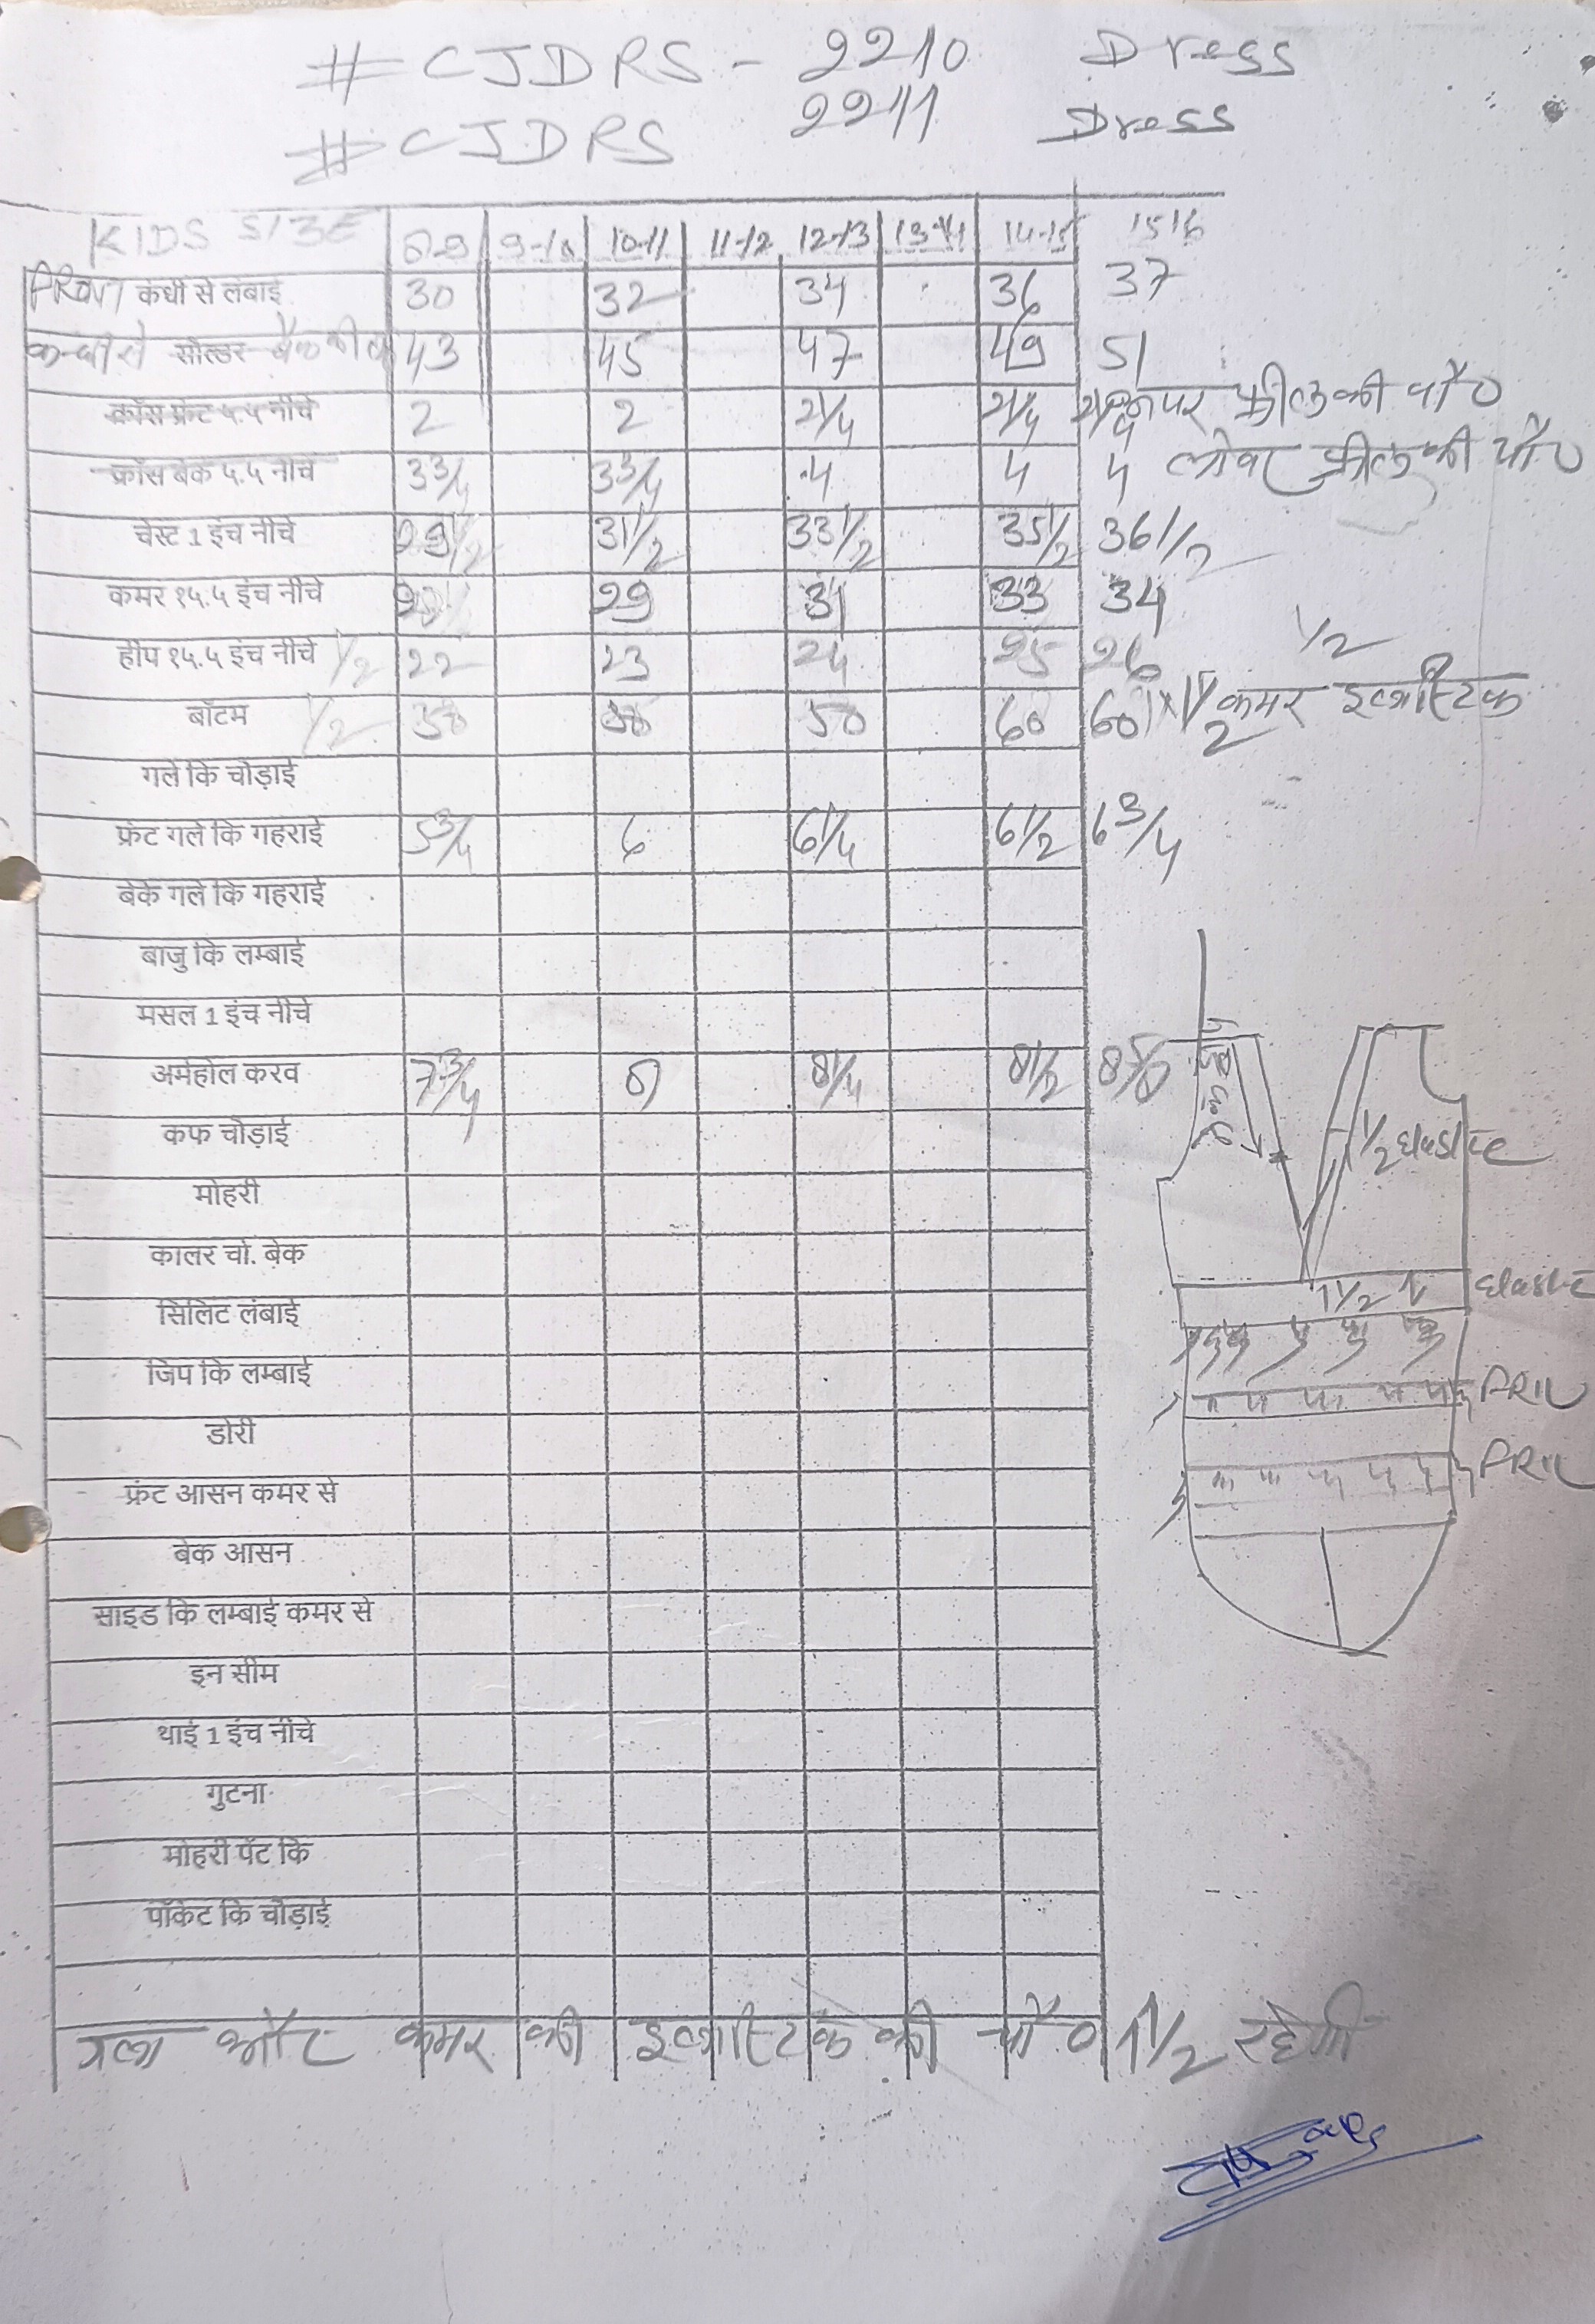 #CJDRS - 2210 Dress
#CJDRS 2211 Dress
KIDS SIZE 8-9 9-10 10-11 11-12 12-13 13-14 14-15 15 16
FRONT कंधी से लंबाई 30 32 34 36 37
सोल्डर 43 45 47 49 51
क्रॉस फ्रंट ५.५ नीचे 2 2 2 1/4 2 1/4 फ्रील की चौ०
फ्रॉस बेक ५.५ नीचे 3 3/4 3 3/4 4 4 4 लोवर फ्रील की चौ०
चेस्ट 1 इंच नीचे 29 1/2 31 1/2 33 1/2 35 1/2 36 1/2
कमर १५.५ इंच नीचे 29 31 33 34
हीप १५.५ इंच नीचे 1/2 22 23 24 25 26 1/2
बॉटम 1/2 50 60 60 1 1/2 कमर इलास्टिक
गले कि चोड़ाई
फ्रंट गले कि गहराई 5 3/4 6 6 1/4 6 1/2 6 3/4
बेके गले कि गहराई
बाजु कि लम्बाई
मसल 1 इंच नीचे
अर्महोल करव 7 3/4 8 8 1/4 8 1/2 8 5/8
कफ चोड़ाई
1/2 elastic
मोहरी
कालर चो. बेक
सिलिट लंबाई 1 1/2 elastic
जिप कि लम्बाई FRIL
डोरी
फ्रंट आसन कमर से FRIL
बेक आसन
साइड कि लम्बाई कमर से
इन सीम
थाई 1 इंच नीचे
गुटना
मोहरी पेंट कि
पॉकेट कि चोड़ाई
गला और कमर की इलास्टिक की चौ० 1 1/2 रहेगी